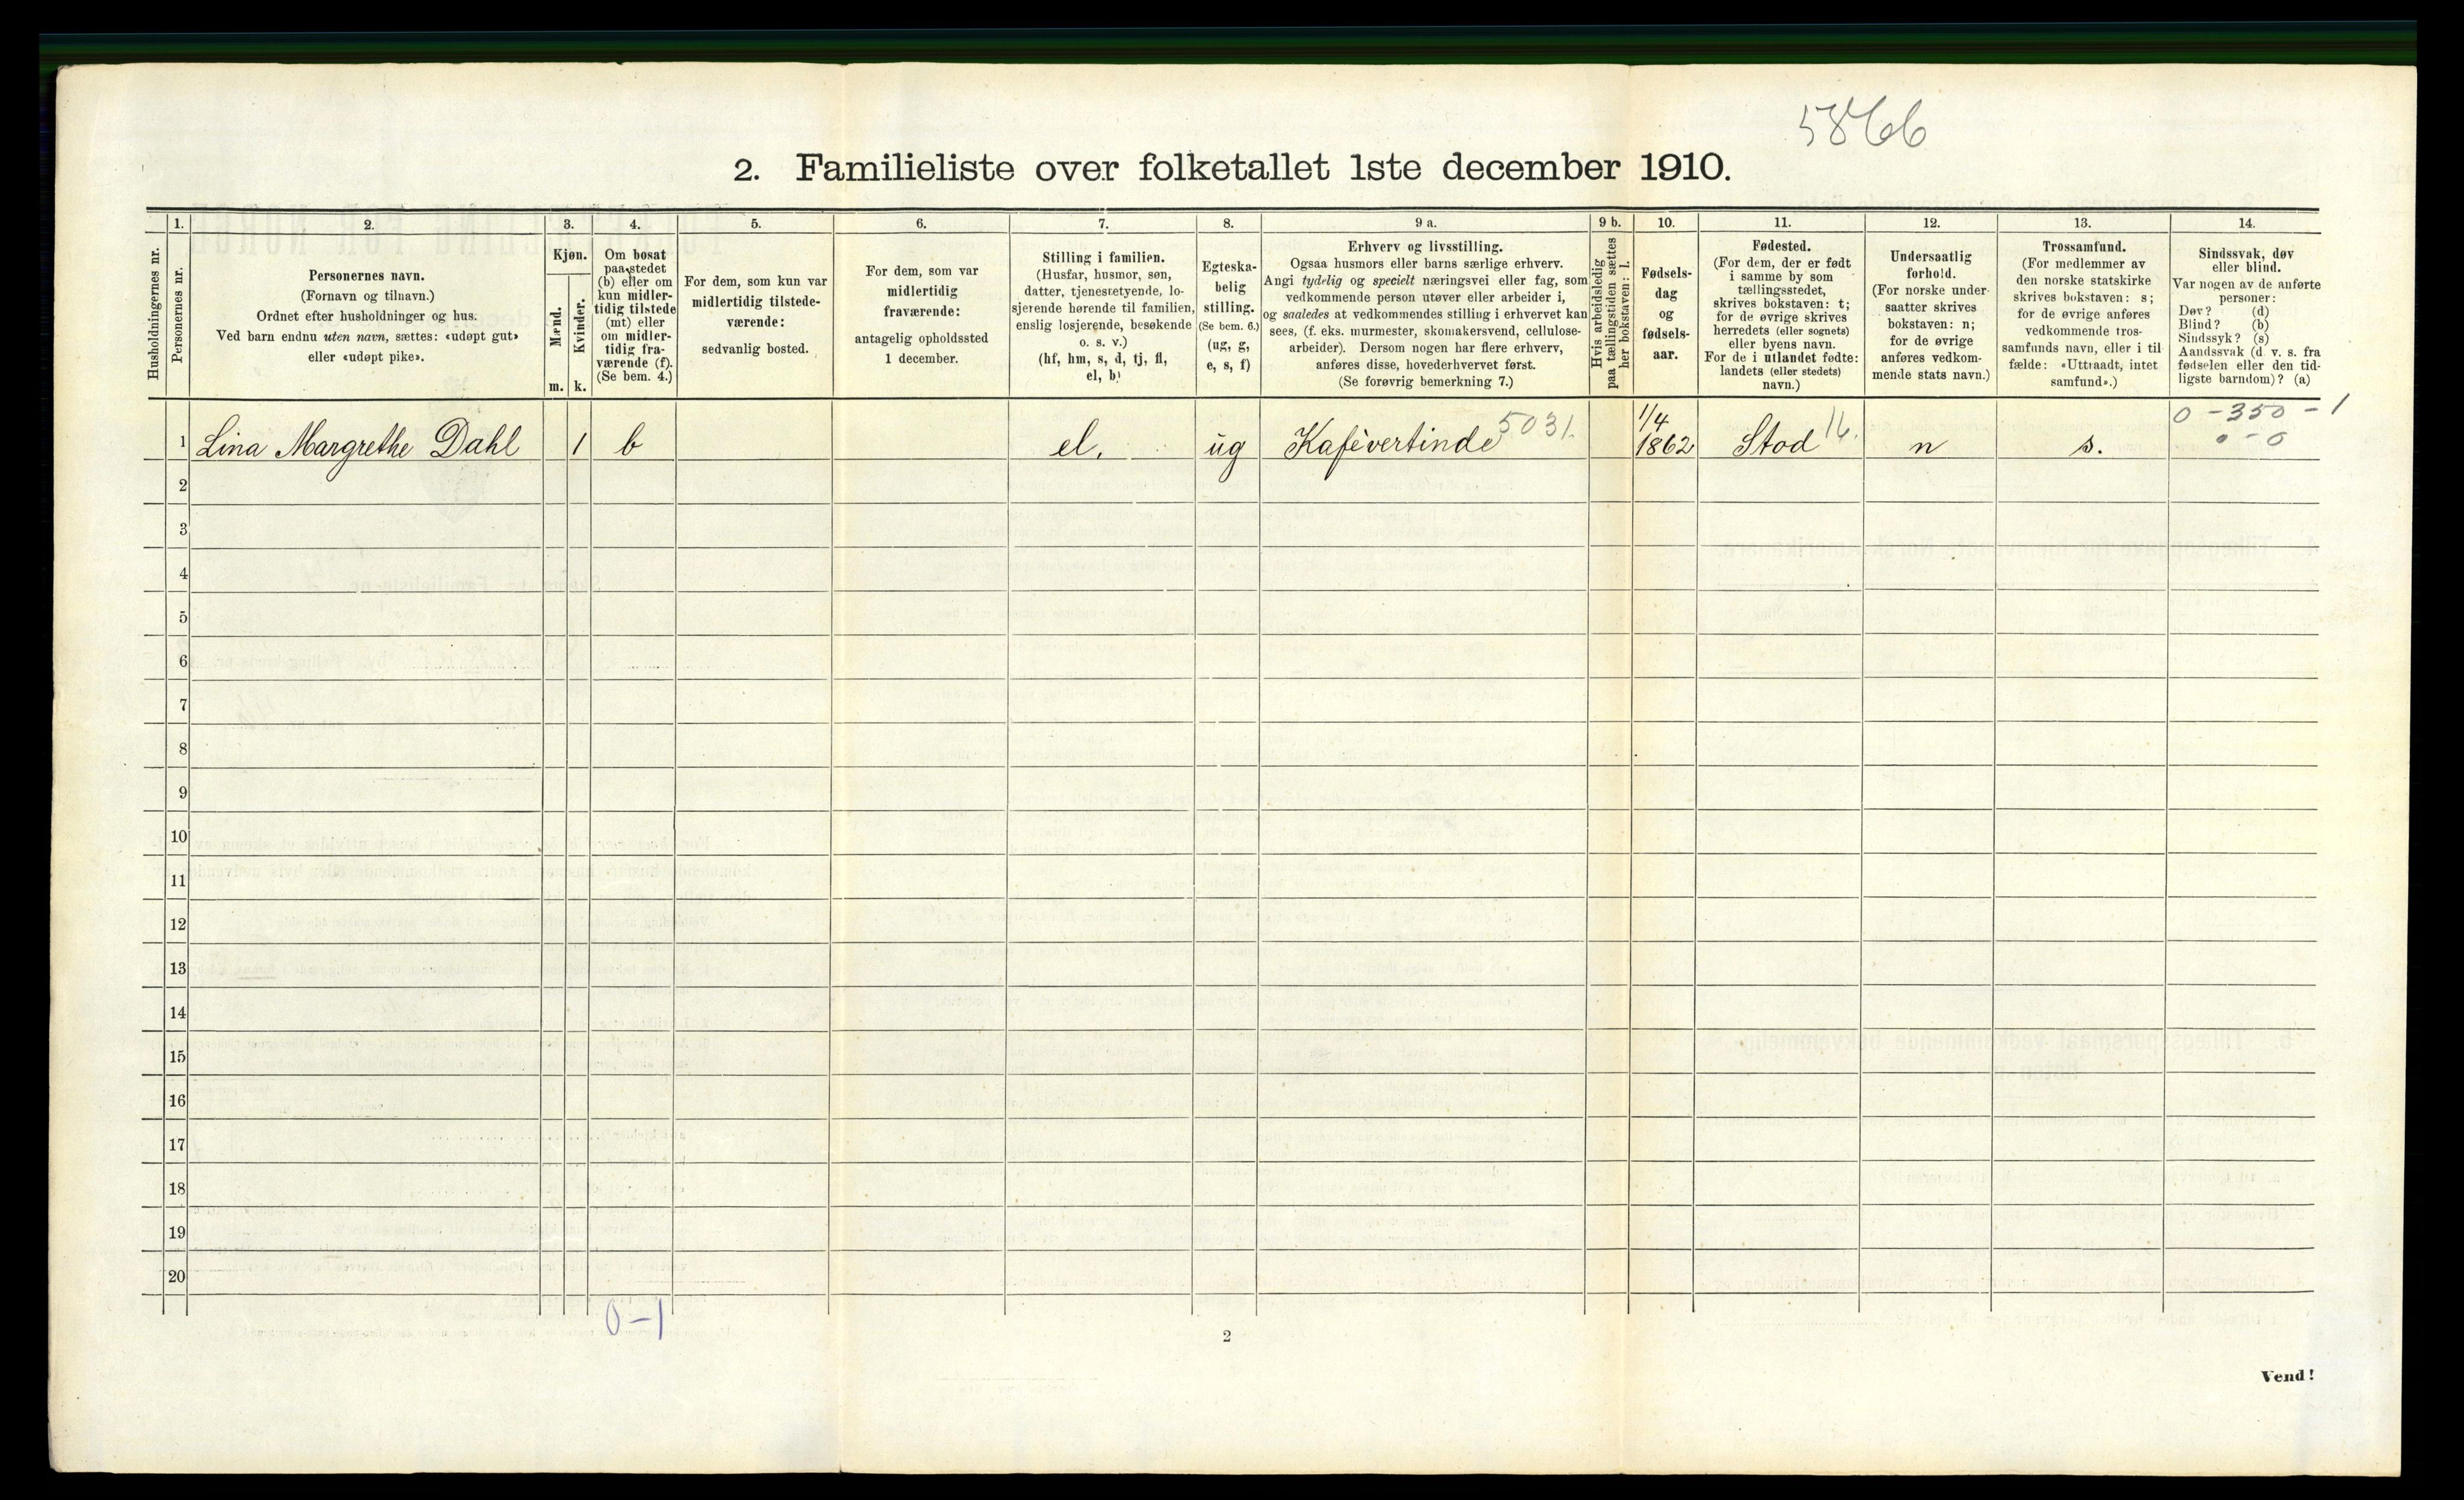 5866
2. Familieliste over folketallet 1ste december 1910.
Husholdningernes nr.
1.
Personernes nr.
2.
Personernes navn.
(Fornavn og tilnavn.)
Ordnet efter husholdninger og hus.
Ved barn endnu uten navn, sættes: «udøpt gut»
eller «udøpt pike».
3.
Kjøn.
Mænd.
Kvinder.
m. k.
4.
Om bosat
paa stedet
(b) eller om
kun midler-
tidig tilstede
(mt) eller
om midler-
tidig fra-
værende (f).
(Se bem. 4.)
5.
For dem, som kun var
midlertidig tilstede-
værende:
sedvanlig bosted.
6.
For dem, som var
midlertidig
fraværende:
antagelig opholdssted
1 december.
7.
Stilling i familien.
(Husfar, husmor, søn,
datter, tjenestetyende, lo-
sjerende hørende til familien,
enslig losjerende, besøkende
o. s. v.)
(hf, hm, s, d, tj, fl,
el, b)
8.
Egteska-
belig
stilling.
(Se bem. 6.)
(ug, g,
e, s, f)
9 a.
Erhverv og livsstilling.
Ogsaa husmors eller barns særlige erhverv.
Angi tydelig og specielt næringsvei eller fag, som
vedkommende person utøver eller arbeider i,
og saaledes at vedkommendes stilling i erhvervet kan
sees, (f. eks. murmester, skomakersvend, cellulose-
arbeider). Dersom nogen har flere erhverv,
anføres disse, hovederhvervet først.
(Se forøvrig bemerkning 7.)
9 b.
Hvis arbeidsledig
paa tællingstiden sættes
her bokstaven: l.
10.
Fødsels-
dag
og
fødsels-
aar.
11.
Fødested.
(For dem, der er født
i samme by som
tællingsstedet,
skrives bokstaven: t;
for de øvrige skrives
herredets (eller sognets)
eller byens navn.
For de i utlandet fødte:
landets (eller stedets)
navn.)
12.
Undersaatlig
forhold.
(For norske under-
saatter skrives
bokstaven: n;
for de øvrige
anføres vedkom-
mende stats navn.)
13.
Trossamfund.
(For medlemmer av
den norske statskirke
skrives bokstaven: s;
for de øvrige anføres
vedkommende tros-
samfunds navn, eller i til-
fælde: «Uttraadt, intet
samfund».)
14.
Sindssvak, døv
eller blind.
Var nogen av de anførte
personer:
Døv? (d)
Blind? (b)
Sindssyk? (s)
Aandssvak (d. v. s. fra
fødselen eller den tid-
ligste barndom)? (a)
1 Lina Margrethe Dahl 1 b el. ug Kafévertinde 5031. 1/4 1862 Stod 16. n s. 0 - 350 - 1
0 - 0
2
3
4
5
6
7
8
9
10
11
12
13
14
15
16
17
18
19
20
0-1
2
Vend!